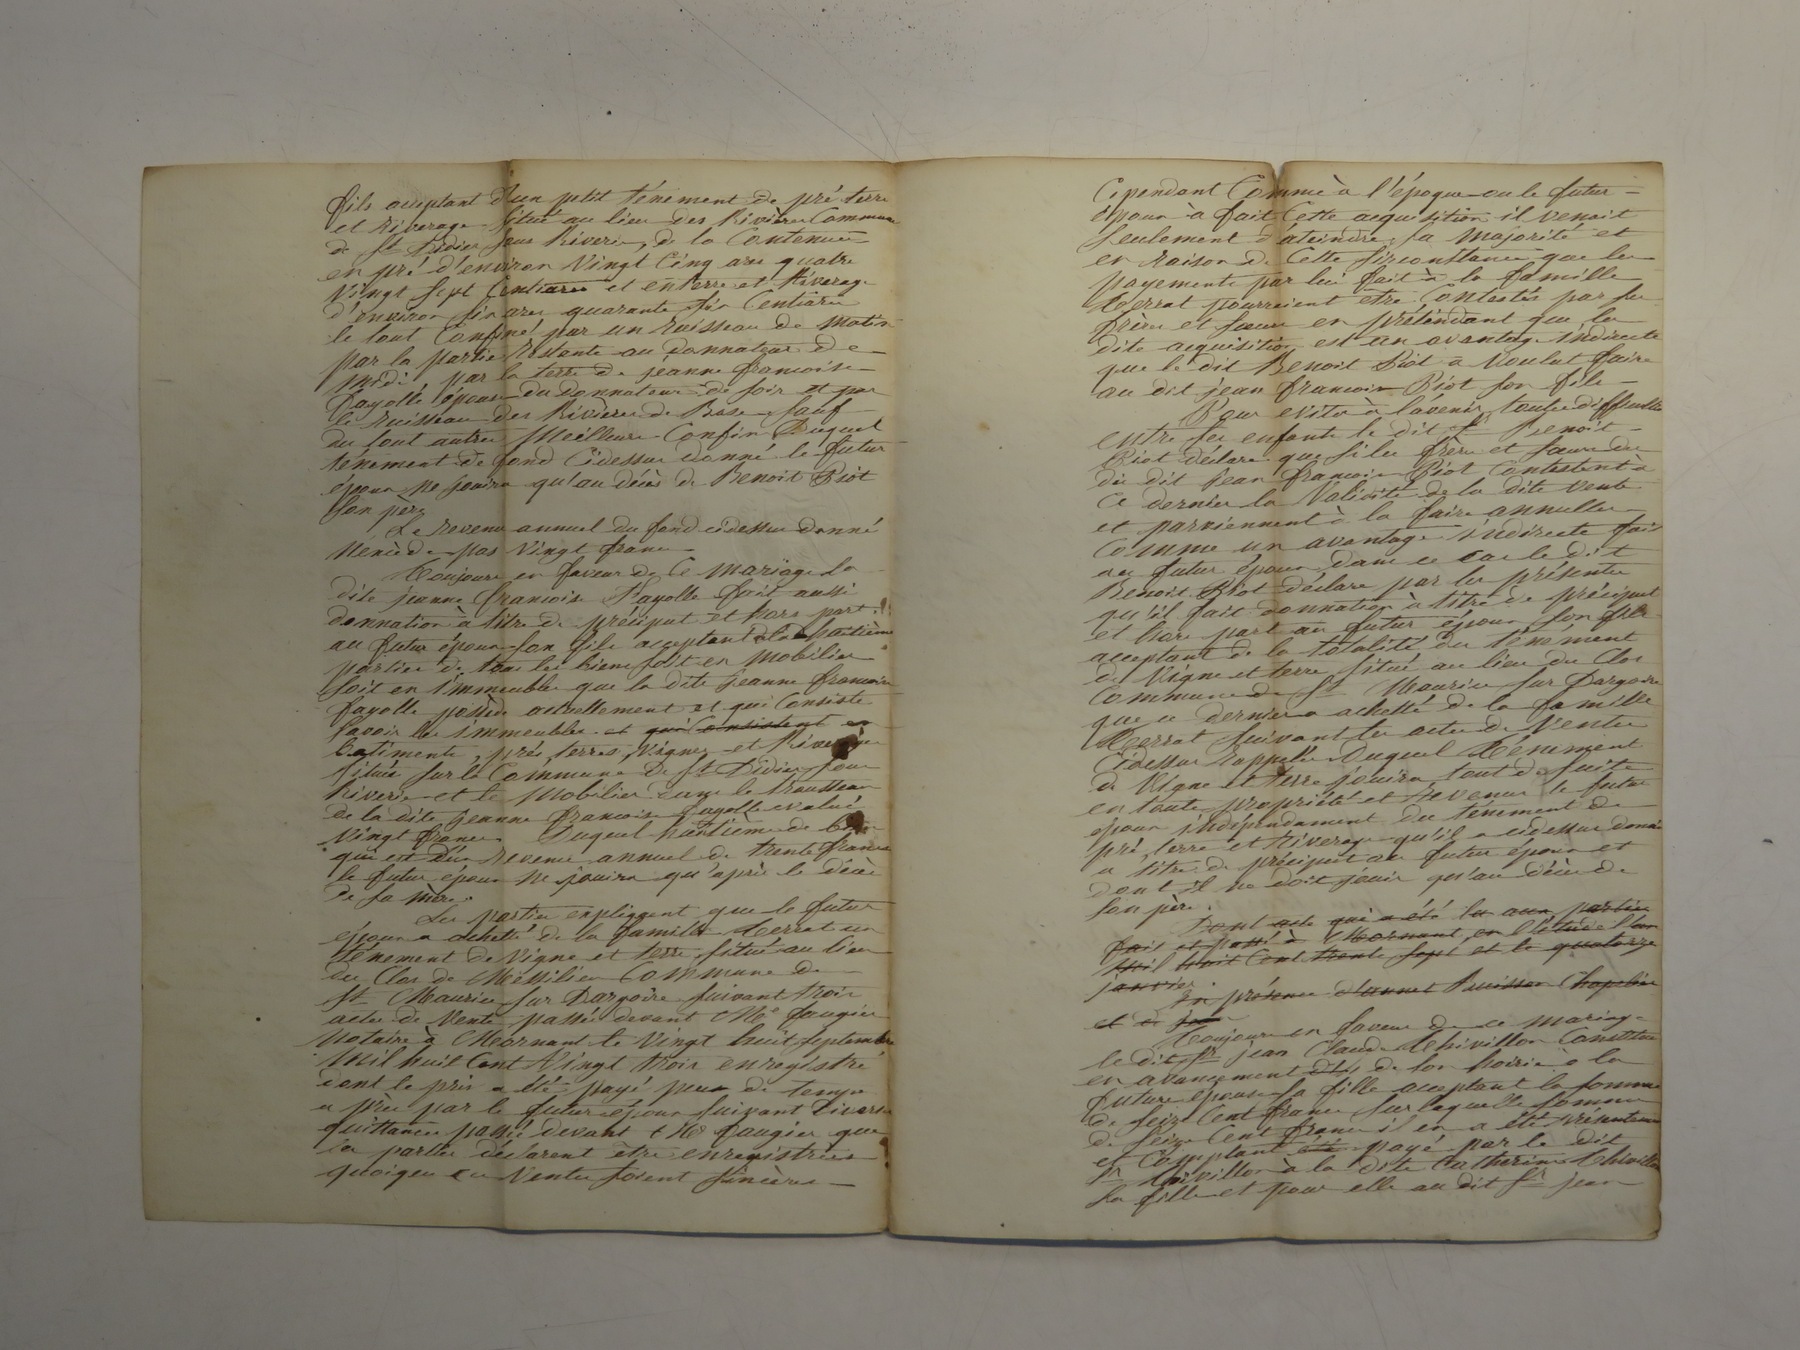 fils acceptant d'un ptit ténement de pré terre
et Riverage situé au lieu des Rivières Commune
de St Didier sous Riverie, de la Contenue
en pré d'environ Vingt Cinq ares quatre
Vingt Sept Centiares et en terre et Riverage
d'environ six ares quarante six Centiares
le tout Confiné par un ruisseau de matin
par la partie Restante au donnateur de
midi par la terre de jeanne francoise
fayolle épouse du donnateur de soir et par
le Ruisseau des Rivières de Bise, sauf
du tout autres Meilleurs Confins Duquel
ténement de fond Cidessus donné le futur
époux ne jouira qu'au décès de Benoit Piot
son père
Le revenu annuel du fond cidessus donné
n'excède pas Vingt francs
Toujours en faveur de Ce mariage la
dite jeanne francoise fayolle fait aussi
donnation à titre de préciput et hors part
au futur époux son fils acceptant de la huitième
partie de tous les biens soit en mobilier
soit en immeubles que la dite jeanne francoise
fayolle possède actuellement et qui Consiste
savoir les immeubles et qui Consistent en
batiments, prés, terres, Vignes et Riverages
situés sur la Commune de St Didier sous
Riverie et le Mobilier dans le trousseau
de la dite jeanne francoise fayolle evalué
Vingt francs Duquel huitième de biens
qui est d'un Revenu annuel de trente francs
le futur époux ne jouira qu'après le décès
de sa mère.
Les parties expliquent que le futur
époux a acheté de la famille Merrat un
ténement de Vigne et terre situé au lieu
du Clos de Messilieu Commune de
St Maurice sur Dargoire suivant trois
actes de Vente passés devant Me faugier
Notaire à Mornant le Vingt huit septembre
Mil huit Cent Vingt trois enregistré
dont le prix a été payé peu de temps
après par le futur époux suivant diverses
quittances passées devant Me faugier que
les parties déclarent être enregistrées
quoique ces Ventes soient sincères
Cependant Comme à l'époque ou le futur
époux à fait Cette acquisition il venoit
seulement d'ateindre sa majorité et
en raison de Cette sirconstance que les
payements par lui fait à la famille
Merrat pourroient etre Contestés par ses
frères et sœurs en prétendant que la
dite acquisition est un avantage indirecte
que le dit Benoit Piot a Voulut faire
au dit jean francois Piot son fils
Pour eviter à l'avenir toutes difficultés
entre ses enfants le dit sr Benoit
Piot déclare que si les frères et sœurs du
dit jean francois Piot Contestent à
Ce dernier la Validité de la dite vente
et parviennent à la faire annuller
Comme un avantage indirecte fait
au futur époux dans ce cas le dit
Benoit Piot déclare par les présentes
qu'il fait donnation à titre de préciput
et hors part au futur époux son fils
acceptant de la totalité du ténement
de Vigne et terre situé au lieu du Clos
Commune de St Maurice sur Dargoire
que ce dernier a acheté de la famille
Merrat suivant les actes de Vente
Cidessus Rappelés Duquel Ténement
de Vigne et terre jouira tout de suite
en toute propriété et Revenus le futur
époux indépendament du ténement de
pré, terre et Riverage qu'il a cidessus donné
a titre de préciput au futur époux et
dont il ne doit jouir qu'au décès de
son père.
Dont acte qui a été lu aux parties
fait et passé à Mornant en l'étude l'an
Mil huit Cent trente sept et le quatorze
janvier.
En présence d'annet Buisson Chapelier
et de jean
Toujours en faveur de ce mariage
le dit sr jean Claude Thivillon Constitue
en avancement de son hoirie à la
future épouse sa fille acceptant la somme
de seize Cent francs sur laquelle somme
de seize Cent francs il en a été présentement
et Comptant été payé par le dit
sr Thivillon à la dite Catherine Thivillon
sa fille et pour elle au dit sr jean